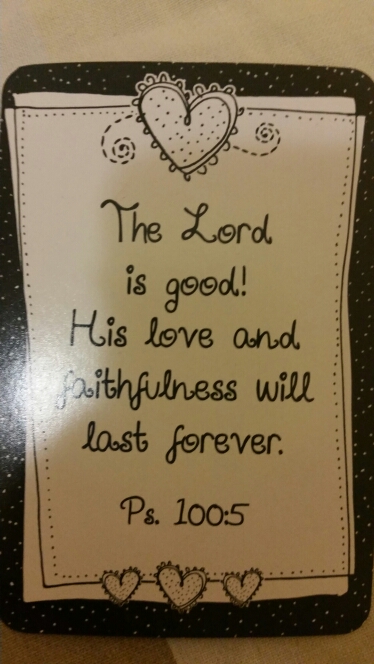 The Lord
is good!
His love and
faithfulness will
last forever.
Ps. 100:5